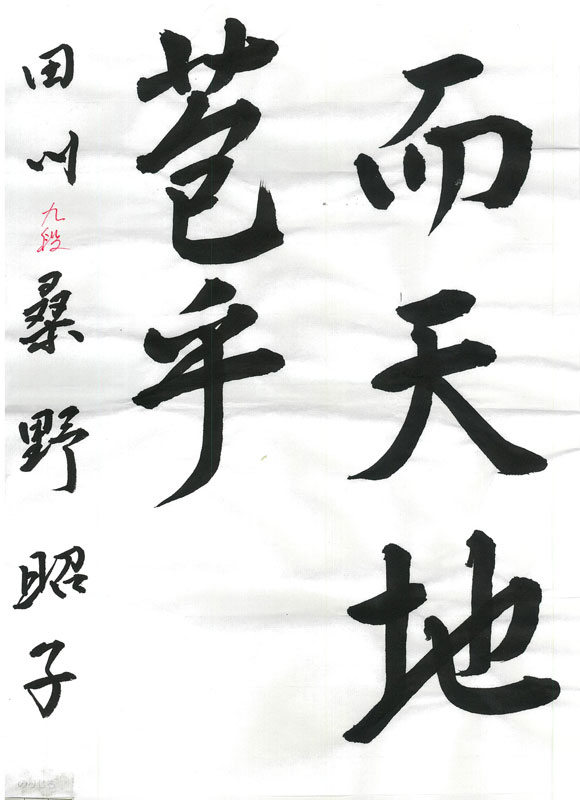 而天地
苞乎
田川 九段 桑野昭子